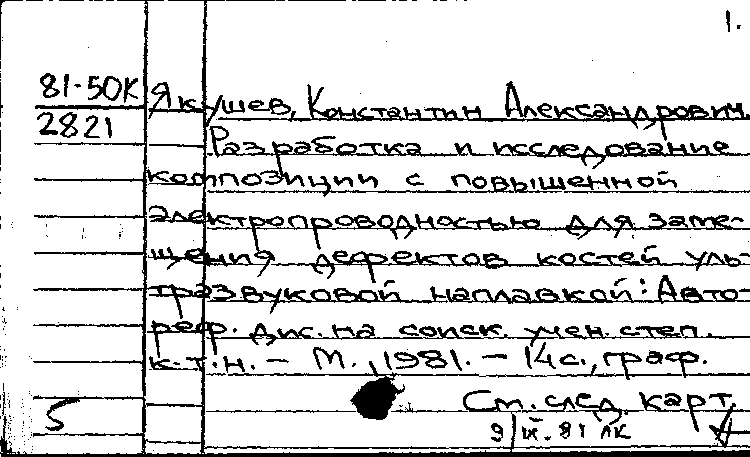 1.
81-50К
2821
Якушев, Константин Александрович.
Разработка и исследование
композиции с повышенной
электропроводностью для заме-
щения дефектов костей уль-
тразвуковой наплавкой: Авто-
реф. дис. на соиск. учен. степ.
к.т.н. - М., 1981. - 14 с., граф.
См. след. карт.
5
9/IX-81 ЛК